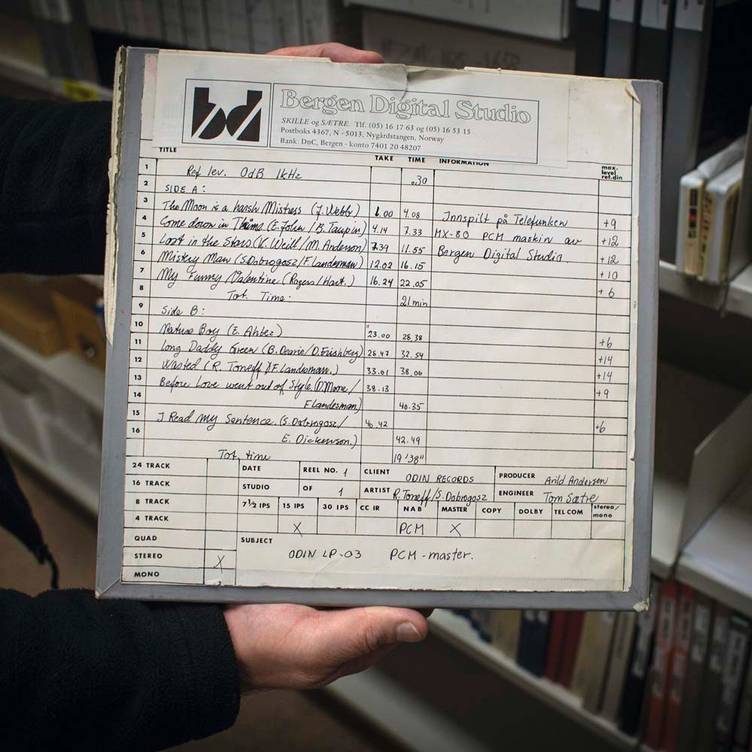 bd
Bergen Digital Studio
SKILLE og SÆTRE. Tlf. (05) 16 17 63 og (05) 16 53 15
Postboks 4367, N - 5013, Nygårdstangen, Norway
Bank: DnC, Bergen - konto 7401 20 48207
TITLE TAKE TIME INFORMATION max. level ref. din
1 Ref lev. 0dB 1kHz .30
2 SIDE A:
3 The Moon is a harsh Mistress (J. Webb) 1.00 4.08 Innspilt på Telefunken +9
4 Come down in Time (E. John / B. Taupin) 4.14 7.33 MX-80 PCM maskin av +12
5 Lost in the Stars (K. Weill / M. Anderson) 7.39 11.55 Bergen Digital Studio +12
6 Mistery Man (S. Dobrogosz / F. Landesman) 12.02 16.15 +10
7 My Funny Valentine (Rogers / Hart.) 16.24 22.05 +6
8 Tot. Time: 21 min
9 Side B:
10 Nature Boy (E. Ahbez) 23.00 28.38 +6
11 Long Daddy Green (B. Dearie / D. Frishberg) 28.47 32.54 +14
12 Wasted (R. Toneff / F. Landesman.) 33.01 38.06 +14
13 Before Love went out of Style (D. Moore / 38.13 +9
14 F Landesman) 40.35
15 I Read My Sentence (S. Dobrogosz / 40.42 +6
16 E. Dickenson.) 42.49
Tot. time 19'38"
24 TRACK DATE REEL NO. 1 CLIENT ODIN RECORDS PRODUCER Arild Andersen
16 TRACK STUDIO OF 1 ARTIST R. Toneff / S. Dobrogosz ENGINEER Tom Sætre
8 TRACK 7½ IPS 15 IPS 30 IPS CC IR NAB MASTER COPY DOLBY TEL COM stereo / mono
4 TRACK X PCM X
QUAD SUBJECT
STEREO X ODIN LP-03 PCM-master.
MONO